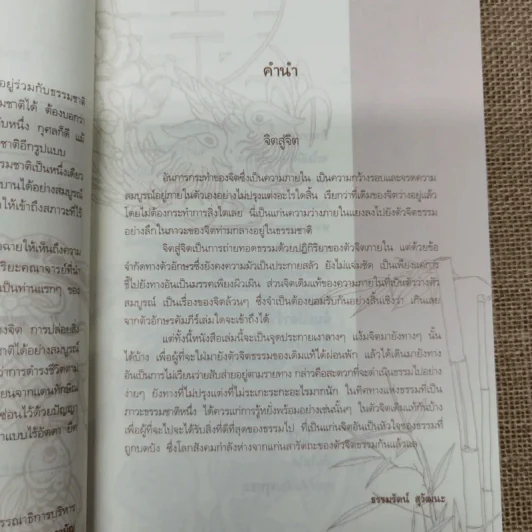 อยู่ร่วมกับธรรมชาติ
ต้องบอกว่า
กุศลก็ดี แม้
ชาติอีกรูปแบบ
ธรรมชาติเป็นหนึ่งเดียว
บานได้อย่างสมบูรณ์
ให้เข้าถึงสภาวะที่ไร้
ฉายให้เห็นถึงความ
คณาจารย์ที่นำ
เป็นท่านแรกๆ ของ
การปล่อยสิ่ง
ชาติได้อย่างสมบูรณ์
ว่าการดำรงชีวิตตาม
ซ่อนไว้ด้วยปัญญา
บรรณาธิการบริหาร
คำนำ
จิตสู่จิต
อันการกระทำของจิตซึ่งเป็นความภายใน เป็นความกว้างรอบและจรดความ
สมบูรณ์อยู่ภายในตัวเองอย่างไม่ปรุงแต่งอะไรใดสิ้น เรียกว่าที่เดิมของจิตว่างอยู่แล้ว
โดยไม่ต้องกระทำการสิ่งใดเลย นี่เป็นแก่นความว่างภายในแยงลงไปยังตัวจิตธรรม
อย่างลึกในภาวะของจิตท่ามกลางอยู่ในธรรมชาติ
จิตสู่จิตเป็นการถ่ายทอดธรรมด้วยปฏิกิริยาของตัวจิตภายใน แต่ด้วยข้อ
จำกัดทางตัวอักษรซึ่งยังคงความมัวเป็นประกายสลัว ยังไม่แจ่มชัด เป็นเพียงแค่การ
ชี้ไปยังทางอันเป็นมรรคเพียงผิวเผิน ส่วนจิตเดิมแท้ของความภายในที่เป็นตัววางตัว
สมบูรณ์ เป็นเรื่องของจิตล้วนๆ ซึ่งจำเป็นต้องยอมรับกันอย่างสิ้นเชิงว่า เกินเลย
จากตัวอักษรคัมภีร์เล่มใดจะเข้าถึงได้
แต่ทั้งนี้หนังสือเล่มนี้จะเป็นจุดประกายเงาลางๆ แง้มจิตมายังทางๆ นั้น
ได้บ้าง เพื่อผู้ที่จะไฝ่มายังตัวจิตธรรมของเดิมแท้ได้ผ่อนพัก แล้วได้เดินมายังทาง
อันเป็นการไม่เวียนว่ายสับส่ายอยู่ตามรายทาง กล่าวคือสะดวกที่จะดำเนินธรรมไปอย่าง
ง่ายๆ ยังทางที่ไม่ปรุงแต่งที่ไม่ระเกะระกะอะไรมากนัก ในทิศทางแห่งธรรมที่เป็น
ภาวะธรรมชาติหนึ่ง ได้ควรแก่การรู้หยั่งพร้อมอย่างเช่นนั้นๆ ในตัวจิตเดิมแท้กันบ้าง
เพื่อผู้ที่จะไปจะได้รับสิ่งที่ดีที่สุดของธรรมไป ที่เป็นแก่นจิตอันเป็นหัวใจของธรรมที่
ถูกบดบัง ซึ่งโลกสังคมกำลังห่างจากแก่นสารัตถะของตัวจิตธรรมกันแล้วแล
ธรรมรัตน์ สุวัฒนะ